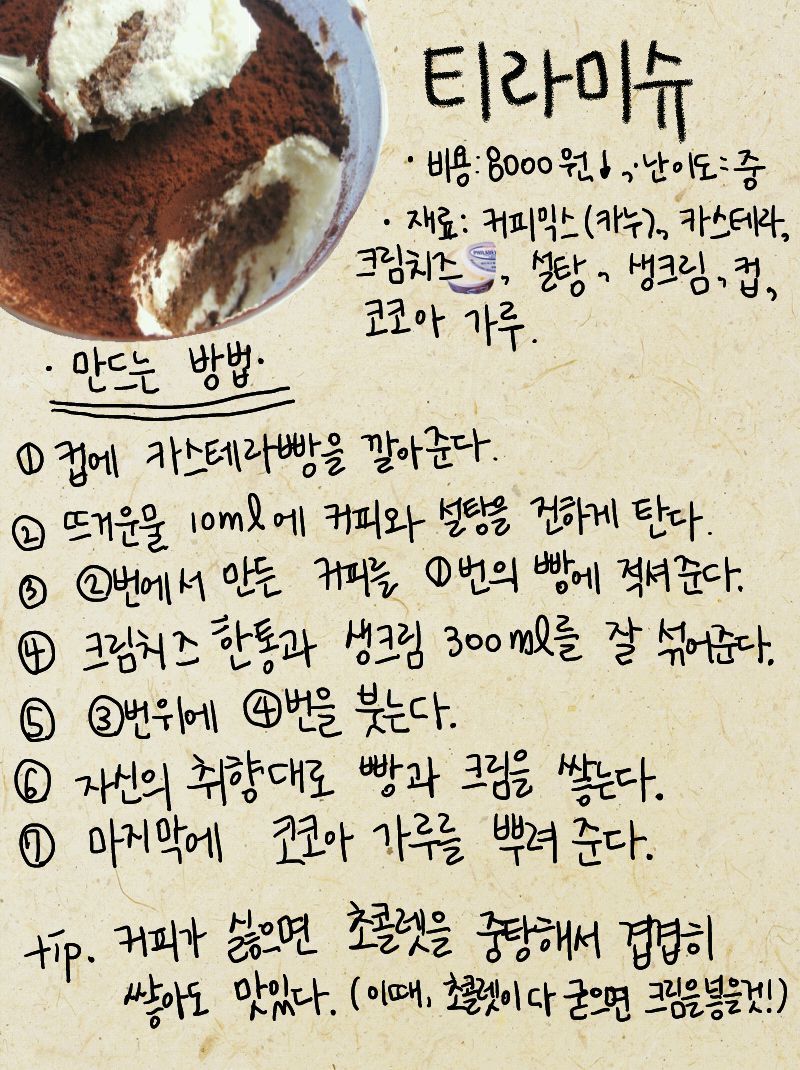 티라미슈
· 비용: 8000원↓, · 난이도: 중
· 재료: 커피믹스(카누), 카스테라,
크림치즈, 설탕, 생크림, 컵,
코코아 가루.
· 만드는 방법·
① 컵에 카스테라빵을 깔아준다.
② 뜨거운물 10ml에 커피와 설탕을 진하게 탄다.
③ ②번에서 만든 커피를 ①번의 빵에 적셔준다.
④ 크림치즈 한통과 생크림 300ml를 잘 섞어준다.
⑤ ③번위에 ④번을 붓는다.
⑥ 자신의 취향대로 빵과 크림을 쌓는다.
⑦ 마지막에 코코아 가루를 뿌려 준다.
tip. 커피가 싫으면 초콜렛을 중탕해서 겹겹히
쌓아도 맛있다. (이때, 초콜렛이 다 굳으면 크림을 붛을것!)